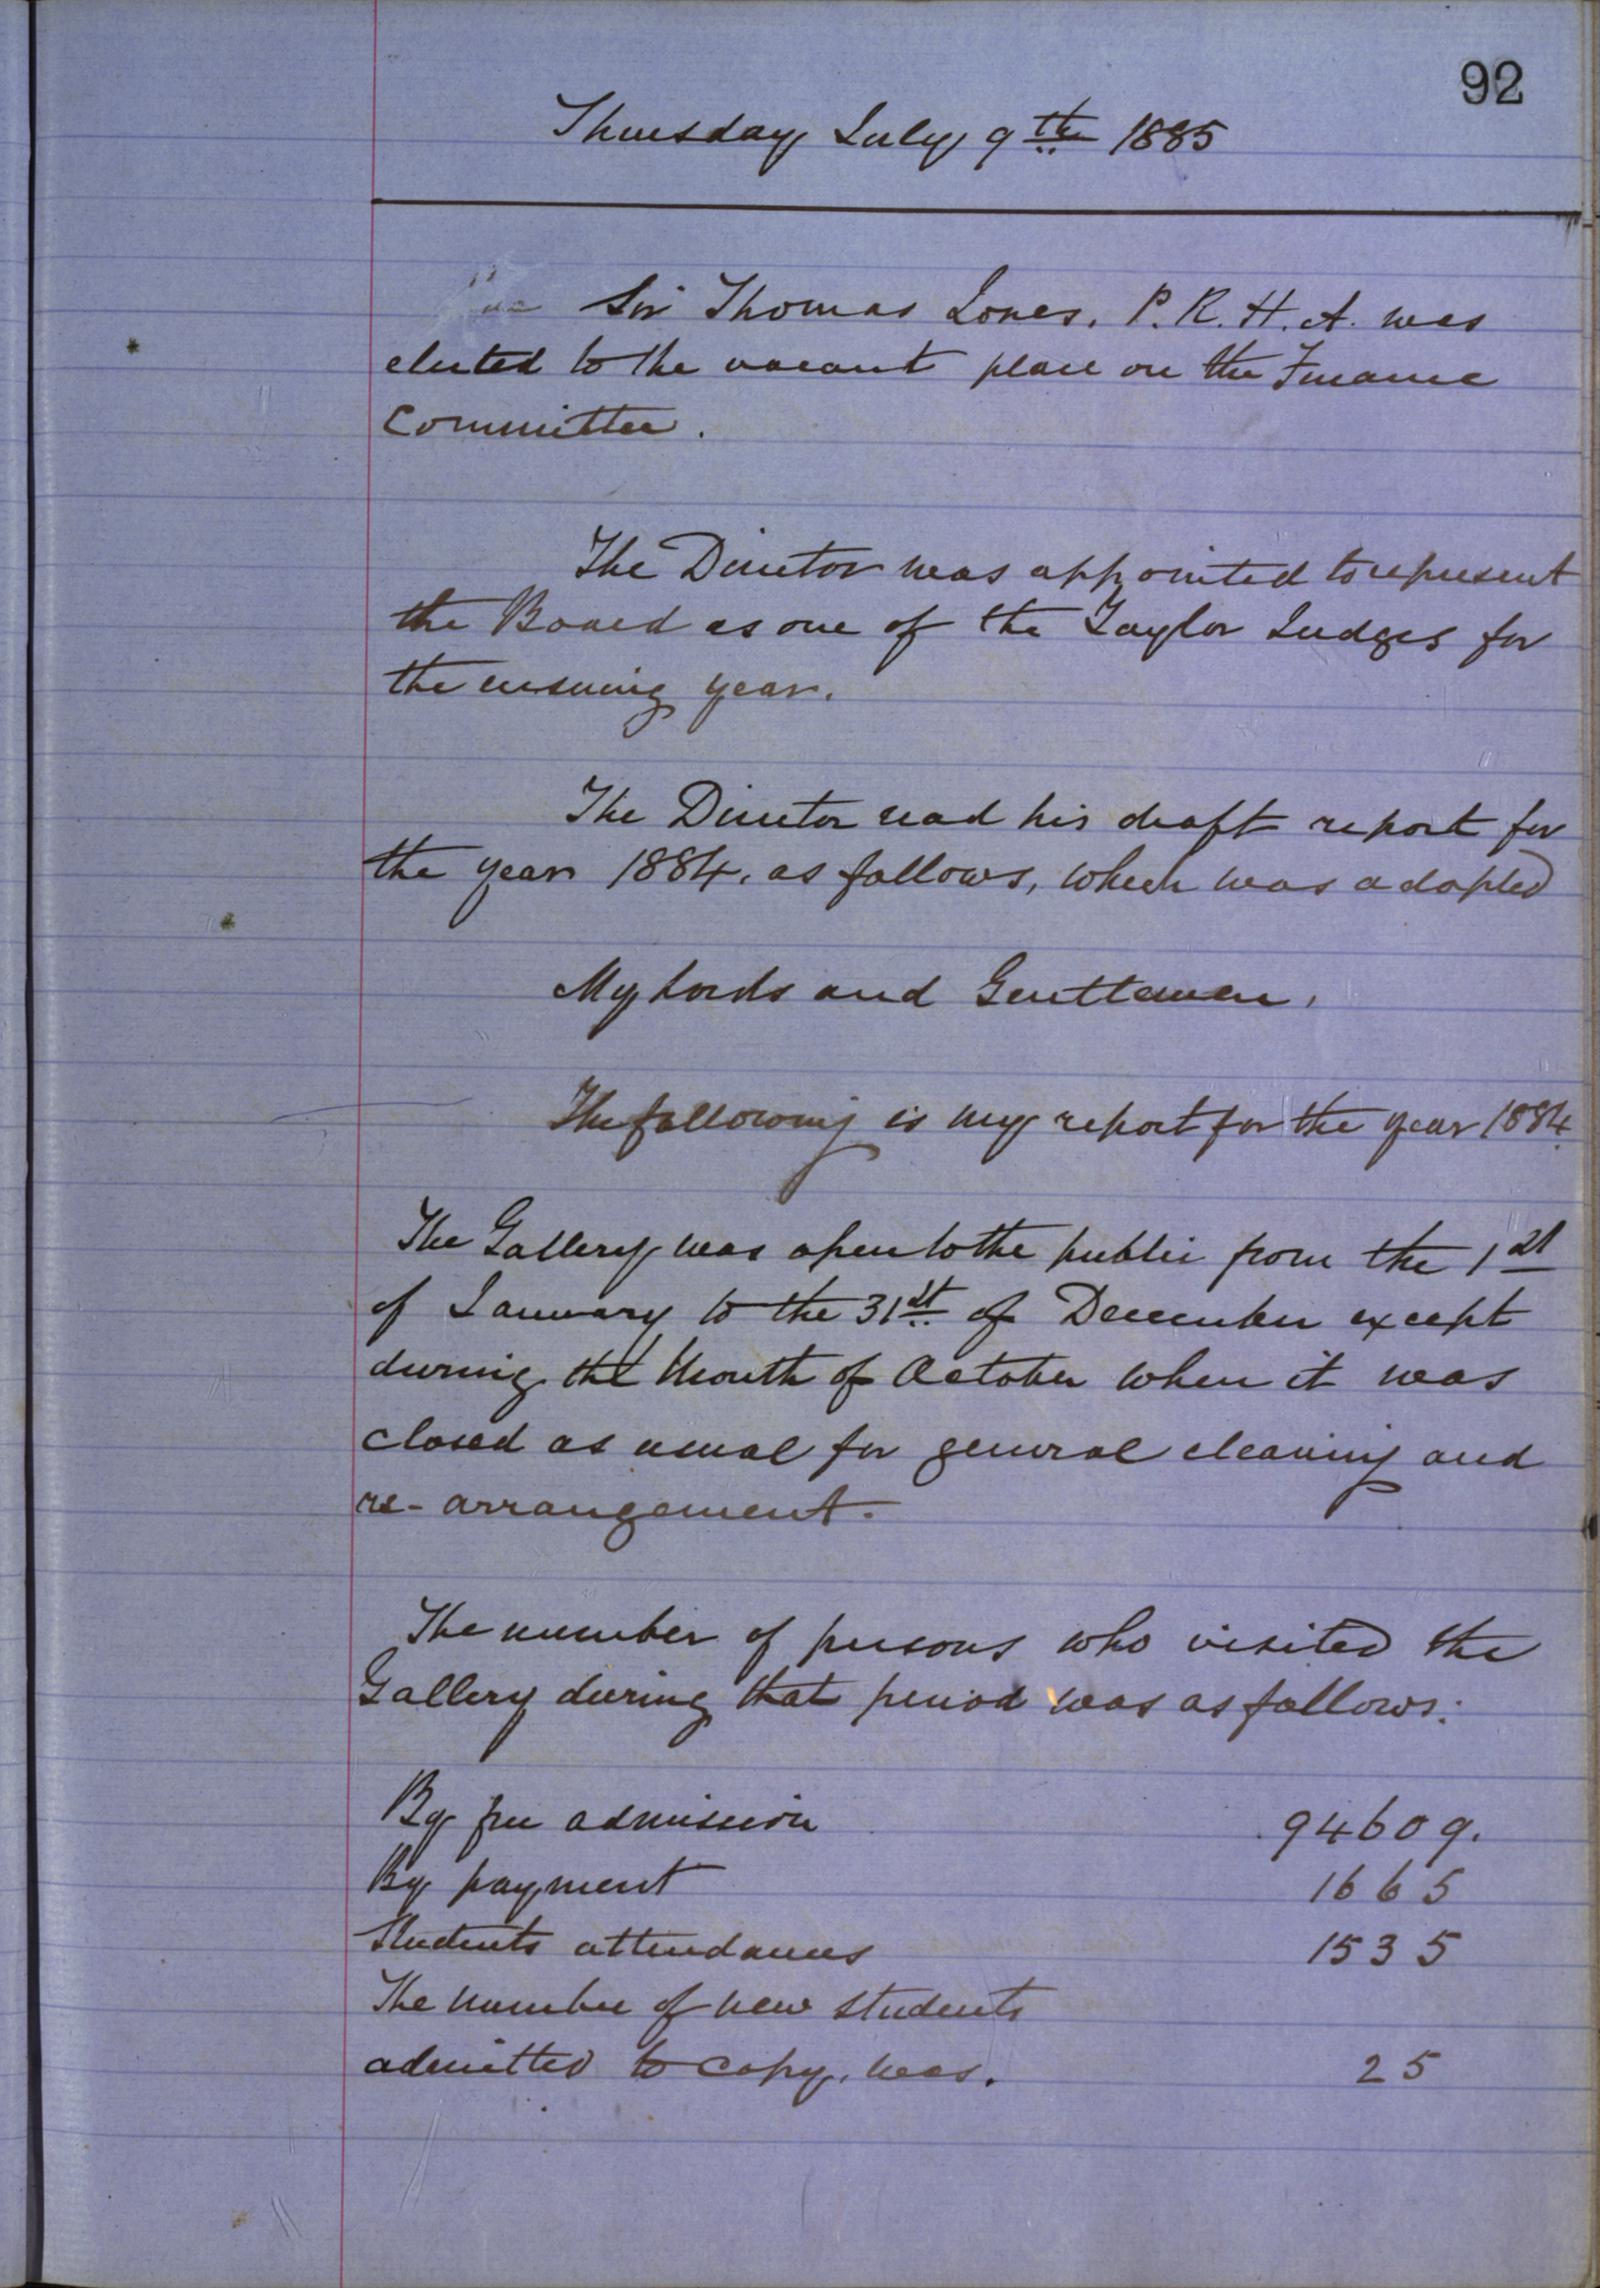 92
Thursday July 9th 1885
Sir Thomas Jones. P. R. H. A. was
elected to the vacant place on the Finance
Committee.
The Director was appointed to represent
the Board as one of the Taylor Judges for
the ensuing year.
The Director read his draft report for
the year 1884. as follows, which was adopted
My Lords and Gentlemen,
The following is my report for the year 1884.
The Gallery was open to the public from the 1st
of January to the 31st of December except
during the Month of October when it was
closed as usual for general cleaning and
re-arrangement.
The number of persons who visited the
Gallery during that period was as follows:
By free admission 94609.
By payment 1665
Students attendances 1535
The number of new students
admitted to copy, was. 25